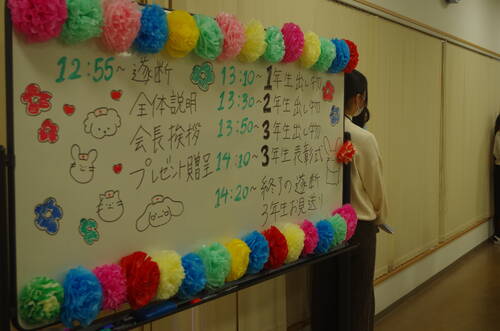 12:55~ 遂断
全体説明
会長挨拶
プレゼント贈呈
13:10~ 1年生出し物
13:30~ 2年生出し物
13:50~ 3年生出し物
14:10~ 3年生表彰式
14:20~ 終了の遂断
3年生お見送り